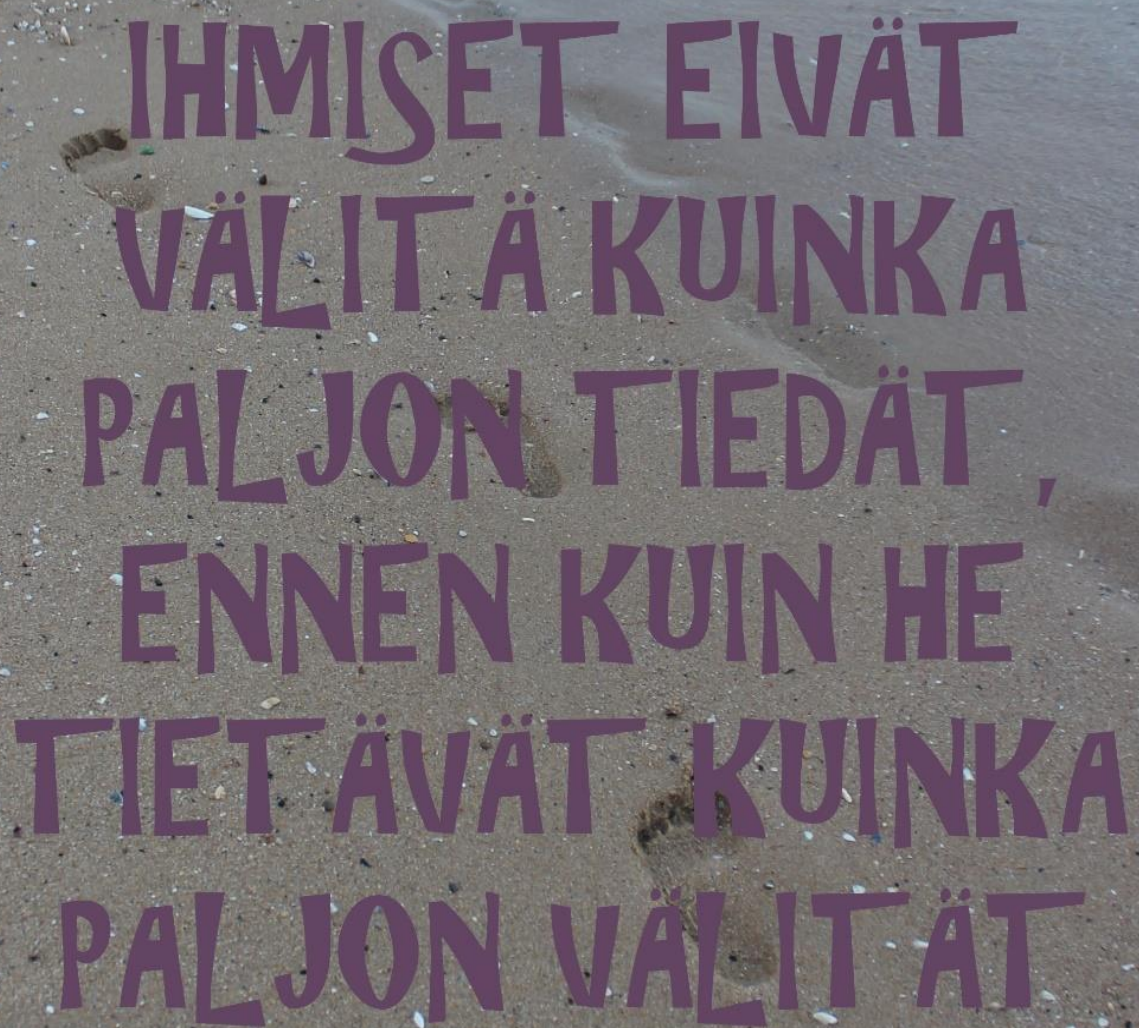 IHMISET EIVÄT
VÄLITÄ KUINKA
PALJON TIEDÄT,
ENNEN KUIN HE
TIETÄVÄT KUINKA
PALJON VÄLITÄT